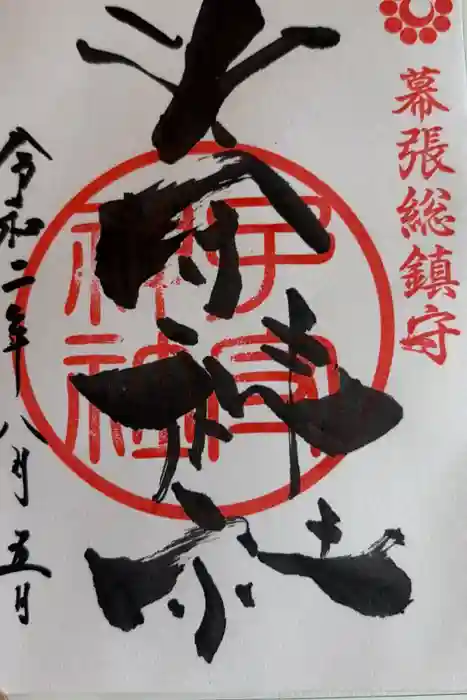 幕張総鎮守
子守神社
子守神社
令和二年八月五日